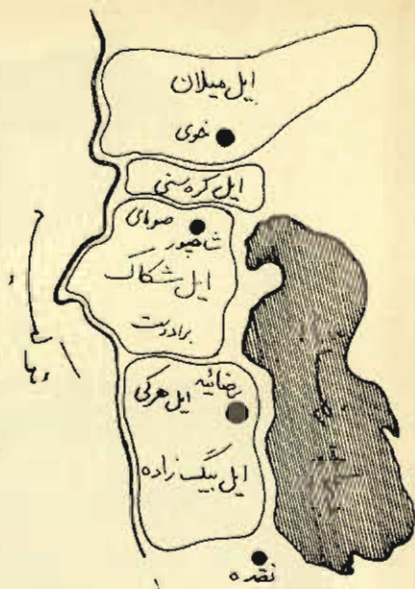 ایل میلان
خوی
ایل کره سنی
صومای
شاهپور
ایل شکاک
برادوست
رضائیه
ایل هرکی
ایل بیگ زاده
نقده